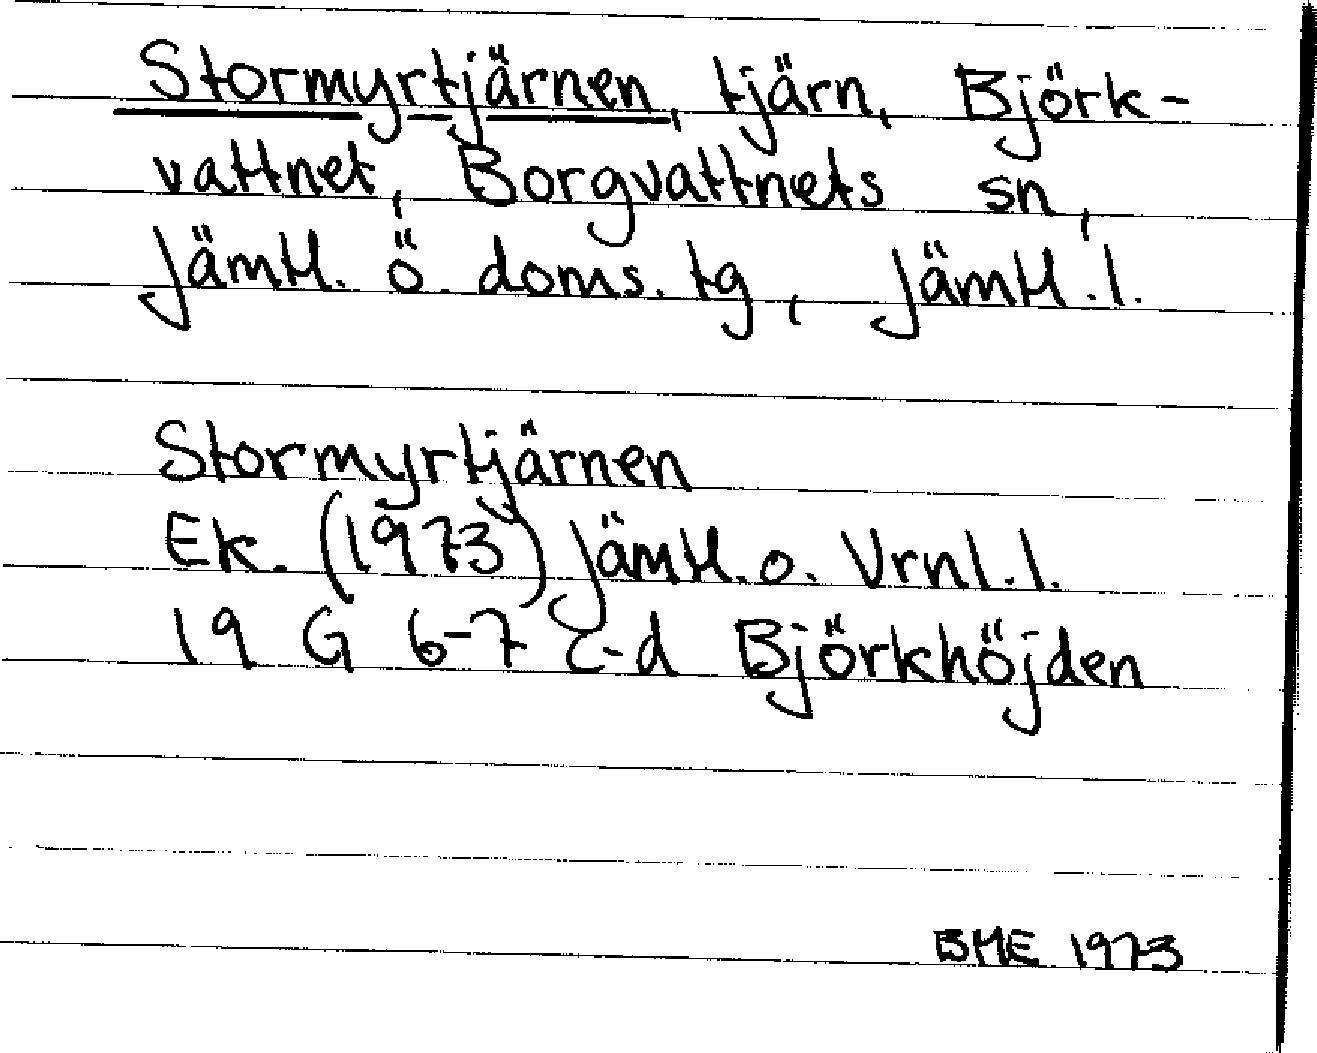 Stormyrtjärnen, tjärn, Björk-
vattnet, Borgvattnets sn,
Jämtl. ö. doms. tg, Jämtl. l.
Stormyrtjärnen
Ek. (1973) Jämtl. o. Vrnl. l.
19 G 6-7 c-d Björkhöjden
BME 1973